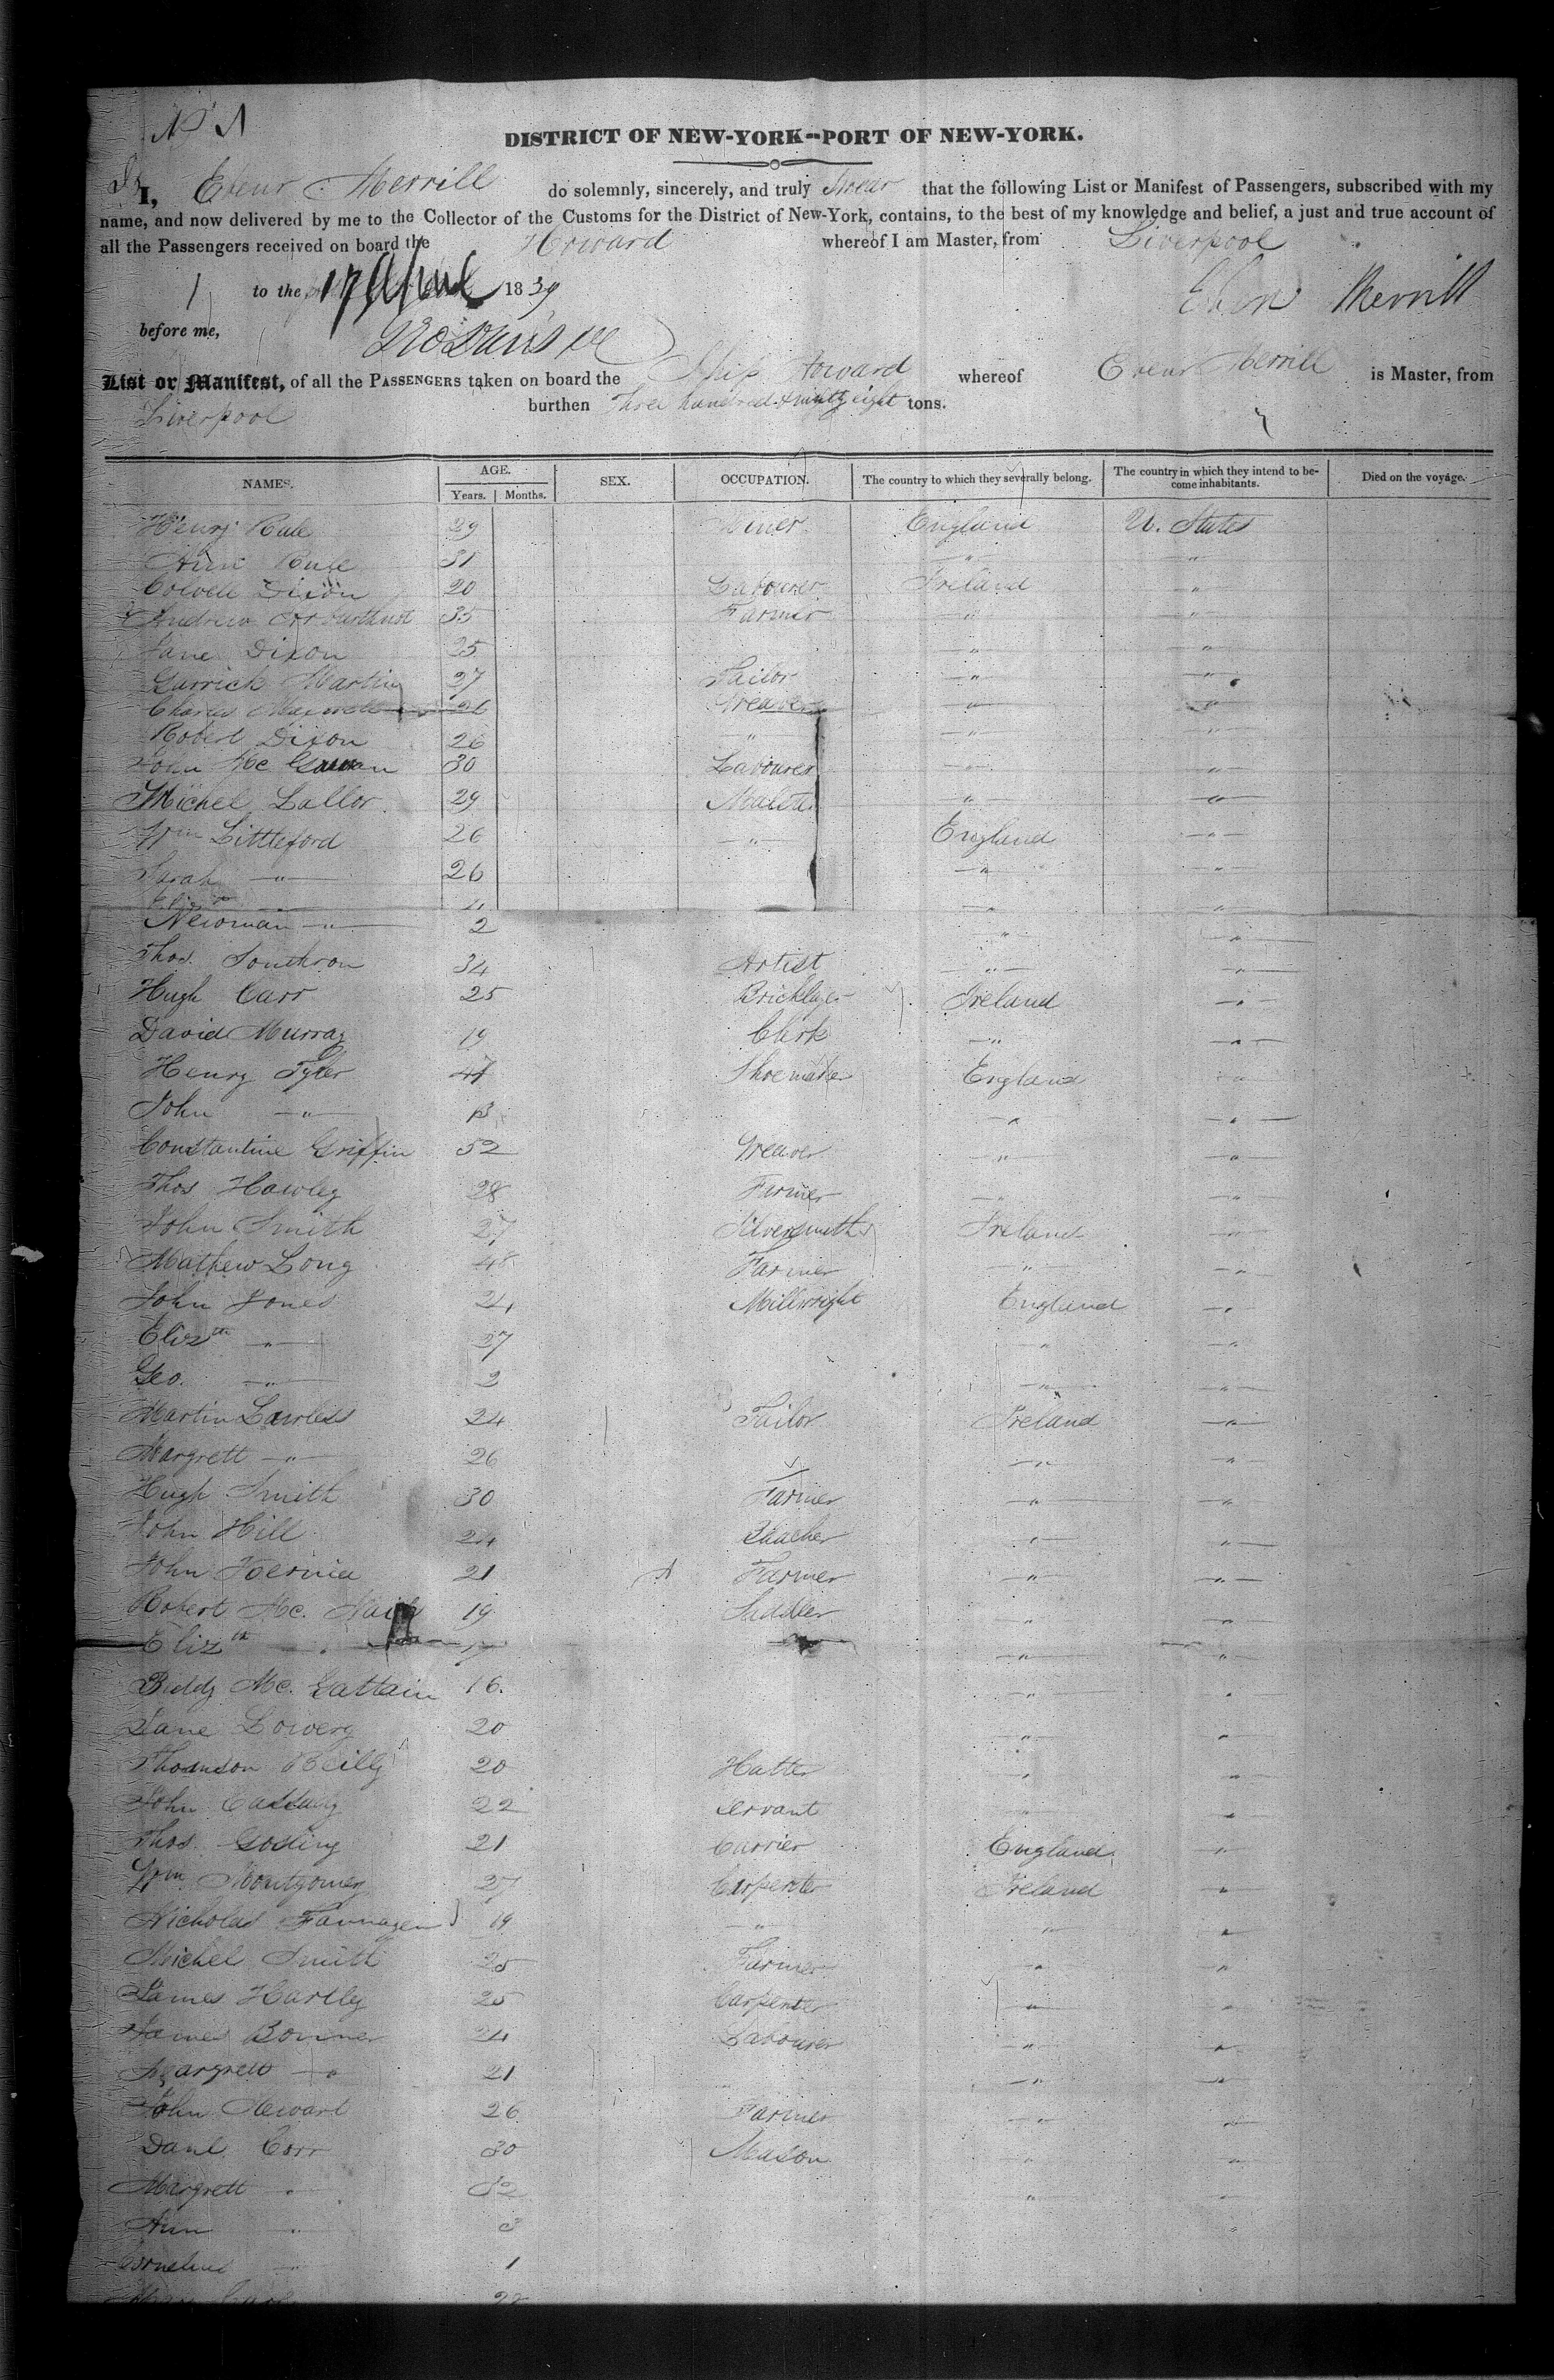 DISTRICT OF NEW-YORK--PORT OF NEW-YORK.
I, Ebenr Merrill do solemnly, sincerely, and truly Swear that the following List or Manifest of Passengers, subscribed with my
name, and now delivered by me to the Collector of the Customs for the District of New-York, contains, to the best of my knowledge and belief, a just and true account of
all the Passengers received on board the Howard whereof I am Master, from Liverpool
to the 17 April 1839 Eben Merrill
before me,
List or Manifest, of all the PASSENGERS taken on board the Ship Howard whereof Ebenr Merrill is Master, from
Liverpool burthen Three hundred & ninety eight tons.
NAMES. AGE. Years. Months. SEX. OCCUPATION. The country to which they severally belong. The country in which they intend to become inhabitants. Died on the voyage.
Henry Rule 29 Miner England U. States
Ann Rule 31 " "
Dixon 20 Labourer Ireland "
Andrew Arburthnot 35 Farmer " "
Jane Dixon 25 " "
Garrick Martin 27 Tailor " "
Charles Maxwell 26 Weaver " "
Robert Dixon 26 " " "
John Mc 30 Labourer " "
Michel Lallor 29 " "
Wm Littleford 26 " England "
Sarah " 26 " "
" " "
Newman " 2 " "
Thos. Southron 34 Artist " "
Hugh Carr 25 Bricklayer Ireland "
David Murray 19 Clerk " "
Henry Tyler 47 Shoemaker England "
John " 13 " "
Constantine Griffin 52 Weaver " "
Thos Hawley 28 Farmer " "
John Smith 27 Silversmith Ireland "
Mathew Long 48 Farmer " "
John Jones 24 Millwright England "
Elizth " 27 " "
Geo. " 2 " "
Martin Lawless 24 Tailor Ireland "
Margrett " 26 " "
Hugh Smith 30 Farmer " "
John Hill 24 " "
John 21 Farmer " "
Robert Mc. 19 Saddler " "
Elizth " 17 " "
Biddy Mc. 16. " "
Jane Lowery 20 " "
Thomson Reilly 20 Hatter " "
John 22 Servant " "
Thos. Gosling 21 Currier England "
Wm Montgomery 27 Carpenter Ireland "
Nicholas 19 " " "
Michel Smith 25 Farmer " "
James Hartley 25 Carpenter " "
James Bonner 24 Labourer " "
Margrett " 21 " "
John Stewart 26 Farmer " "
Danl. Corr 30 Mason " "
Margrett " 32 " "
Ann " 3 "
Cornelius " 1